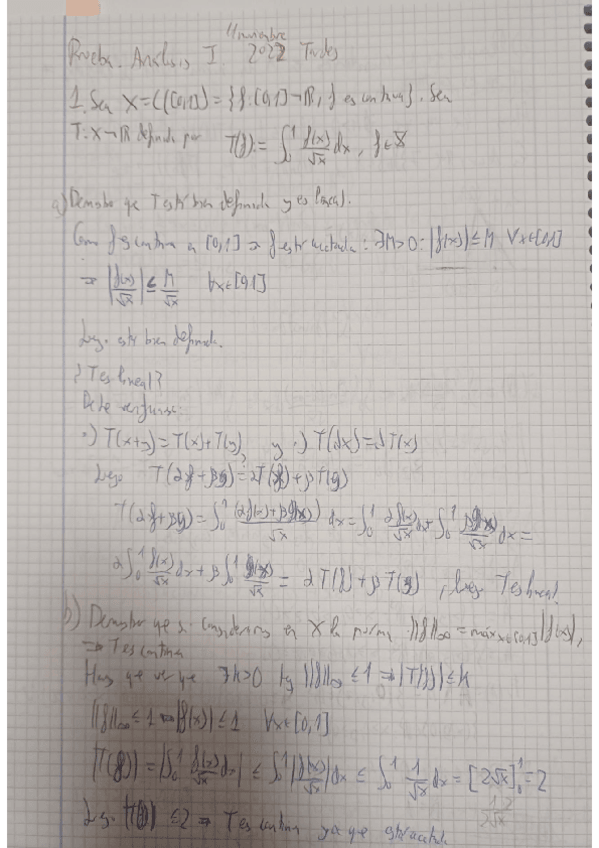 Prueba. Análisis I 11 noviembre 2022 Tardes
1. Sea X=C([0,1])={f:[0,1]→ℝ, f es continua}. Sea
T:X→ℝ definida por T(f):=∫₀¹ f(x)/√x dx, f∈X
a) Demostrar que T está bien definida y es lineal.
Como f es continua en [0,1] ⇒ f está acotada: ∃M>0: |f(x)|≤M ∀x∈[0,1]
⇒ |f(x)/√x| ≤ M/√x ∀x∈[0,1]
Luego está bien definida.
¿T es lineal?
Debe verificarse:
·) T(x+y)=T(x)+T(y), y ·) T(λx)=λT(x)
Luego T(αf+βg)=αT(f)+βT(g)
T(αf+βg)=∫₀¹ (αf(x)+βg(x))/√x dx=∫₀¹ αf(x)/√x dx+∫₀¹ βg(x)/√x dx=
α∫₀¹ f(x)/√x dx+β∫₀¹ g(x)/√x = αT(f)+βT(g), luego T es lineal
b) Demostrar que si consideramos en X la norma ||f||∞=máx x∈[0,1]|f(x)|,
⇒ T es continua
Hay que ver que ∃k>0 tq ||f||∞≤1 ⇒ |T(f)|≤k
||f||∞≤1 ⇒ |f(x)|≤1 ∀x∈[0,1]
|T(f)|=|∫₀¹ f(x)/√x dx| ≤ ∫₀¹ |f(x)/√x| dx ≤ ∫₀¹ 1/√x dx = [2√x]₀¹=2
Luego T(f) ≤2 ⇒ T es continua ya que está acotada